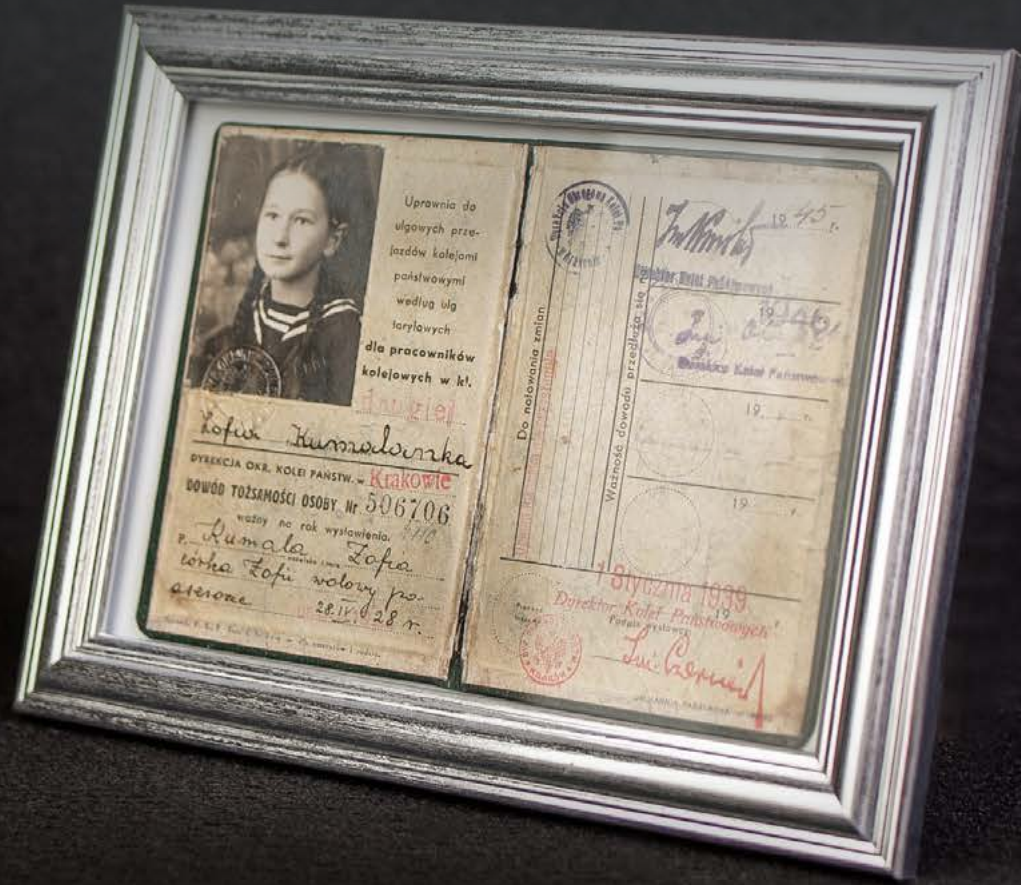 Uprawnia do
ulgowych prze-
jazdów kolejami
państwowymi
według ulg
taryfowych
dla pracowników
kolejowych w kl.
drugiej
Zofia Kumalanka
DYREKCJA OKR. KOLEI PAŃSTW. w Krakowie
DOWÓD TOŻSAMOŚCI OSOBY Nr 506706
ważny na rok wystawienia.
P. Kumala Zofia
córka Zofii wdowy po
asesorze
28.IV.1928 r.
Do notowania zmian
Ważność dowodu przedłuża się na
19 45 r.
Dyrektor Kolei Państwowych
19
Dyrektor Kolei Państwowych
19 r.
19 r.
1 Stycznia 1939
19 r.
Dyrektor Kolei Państwowych
Podpis wystawcy